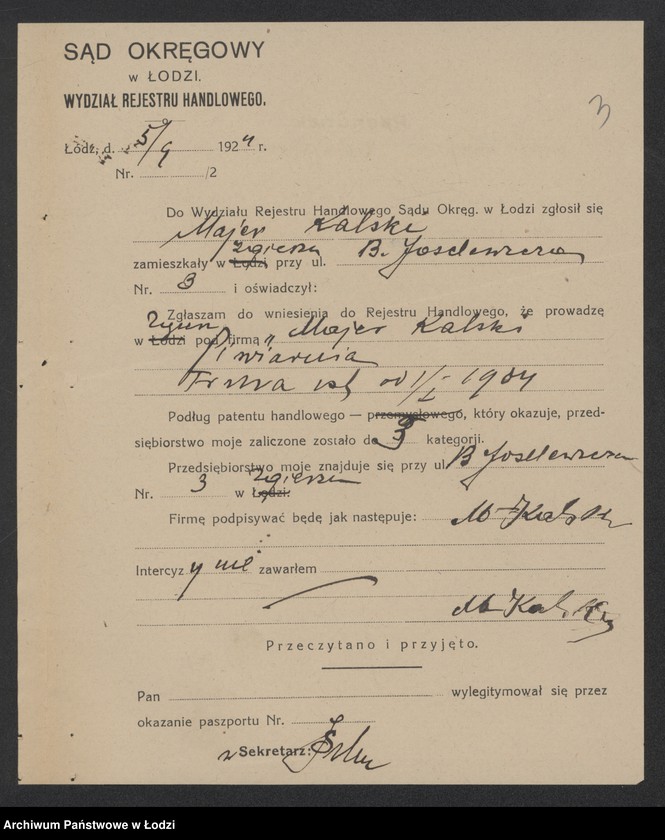 SĄD OKRĘGOWY
w ŁODZI.
WYDZIAŁ REJESTRU HANDLOWEGO.
3
Łódź, d. 5/9 1924 r.
Nr. /2
Do Wydziału Rejestru Handlowego Sądu Okręg. w Łodzi zgłosił się
Majer Kalski
zamieszkały w Łodzi Zgierzu przy ul. B. Joselewicza
Nr. 3 i oświadczył:
Zgłaszam do wniesienia do Rejestru Handlowego, że prowadzę
w Łodzi pod firmą „Majer Kalski
Piwiarnia
Firma ist. od 1/I 1904
Podług patentu handlowego — przemysłowego, który okazuje, przed-
siębiorstwo moje zaliczone zostało do 3 kategorji.
Przedsiębiorstwo moje znajduje się przy ul B Joselewicza
Nr. 3 w Łodzi. Zgierzu
Firmę podpisywać będę jak następuje: M Kalski
Intercyzy nie zawarłem
M Kalski
Przeczytano i przyjęto.
Pan wylegitymował się przez
okazanie paszportu Nr.
Sekretarz:
Archiwum Państwowe w Łodzi